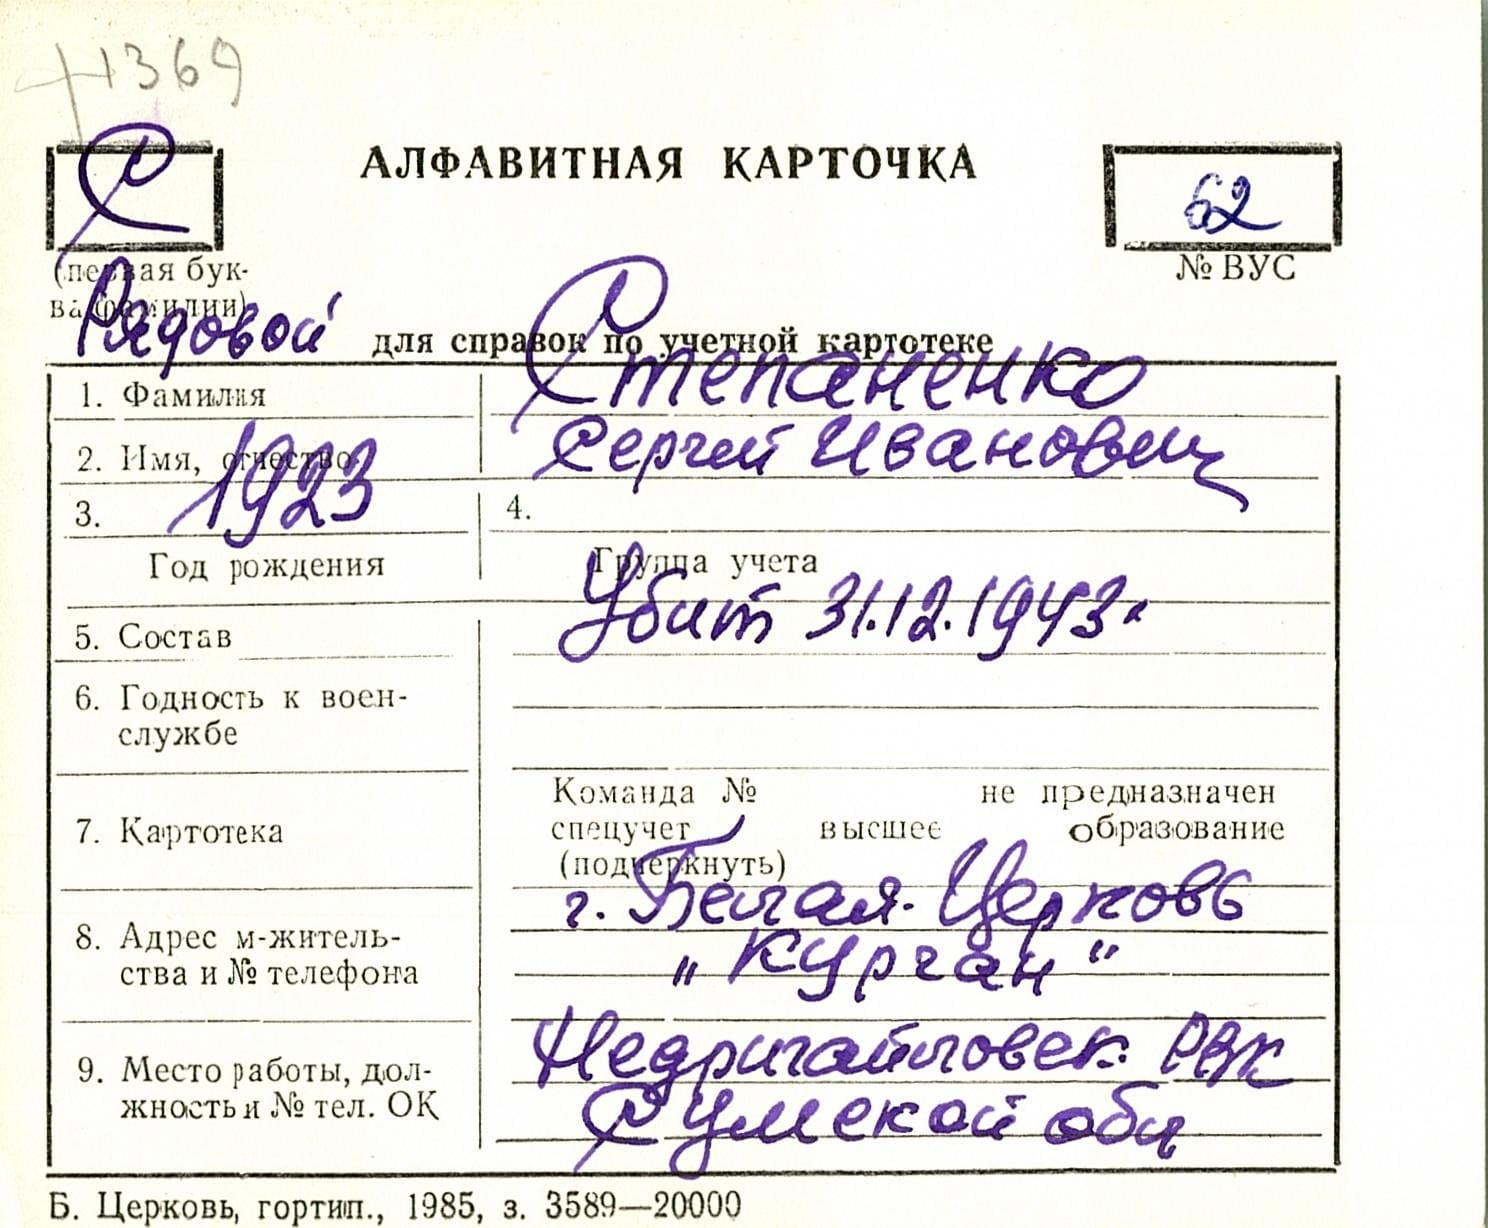 1369
С
АЛФАВИТНАЯ КАРТОЧКА
62
(первая бук-
ва фамилии)
№ ВУС
Рядовой
для справок по учетной картотеке
1. Фамилия
Степаненко
2. Имя, отчество
Сергей Иванович
3. 1923
4.
Год рождения
Группа учета
5. Состав
Убит 31.12.1943г
6. Годность к воен-
службе
7. Картотека
Команда № не предназначен
спецучет высшее образование
(подчеркнуть)
8. Адрес м-житель-
ства и № телефона
г. Белая-Церковь
„Курган"
9. Место работы, дол-
жность и № тел. ОК
Недригайловск. РВК
Сумской обл
Б. Церковь, гортип., 1985, з. 3589—20000